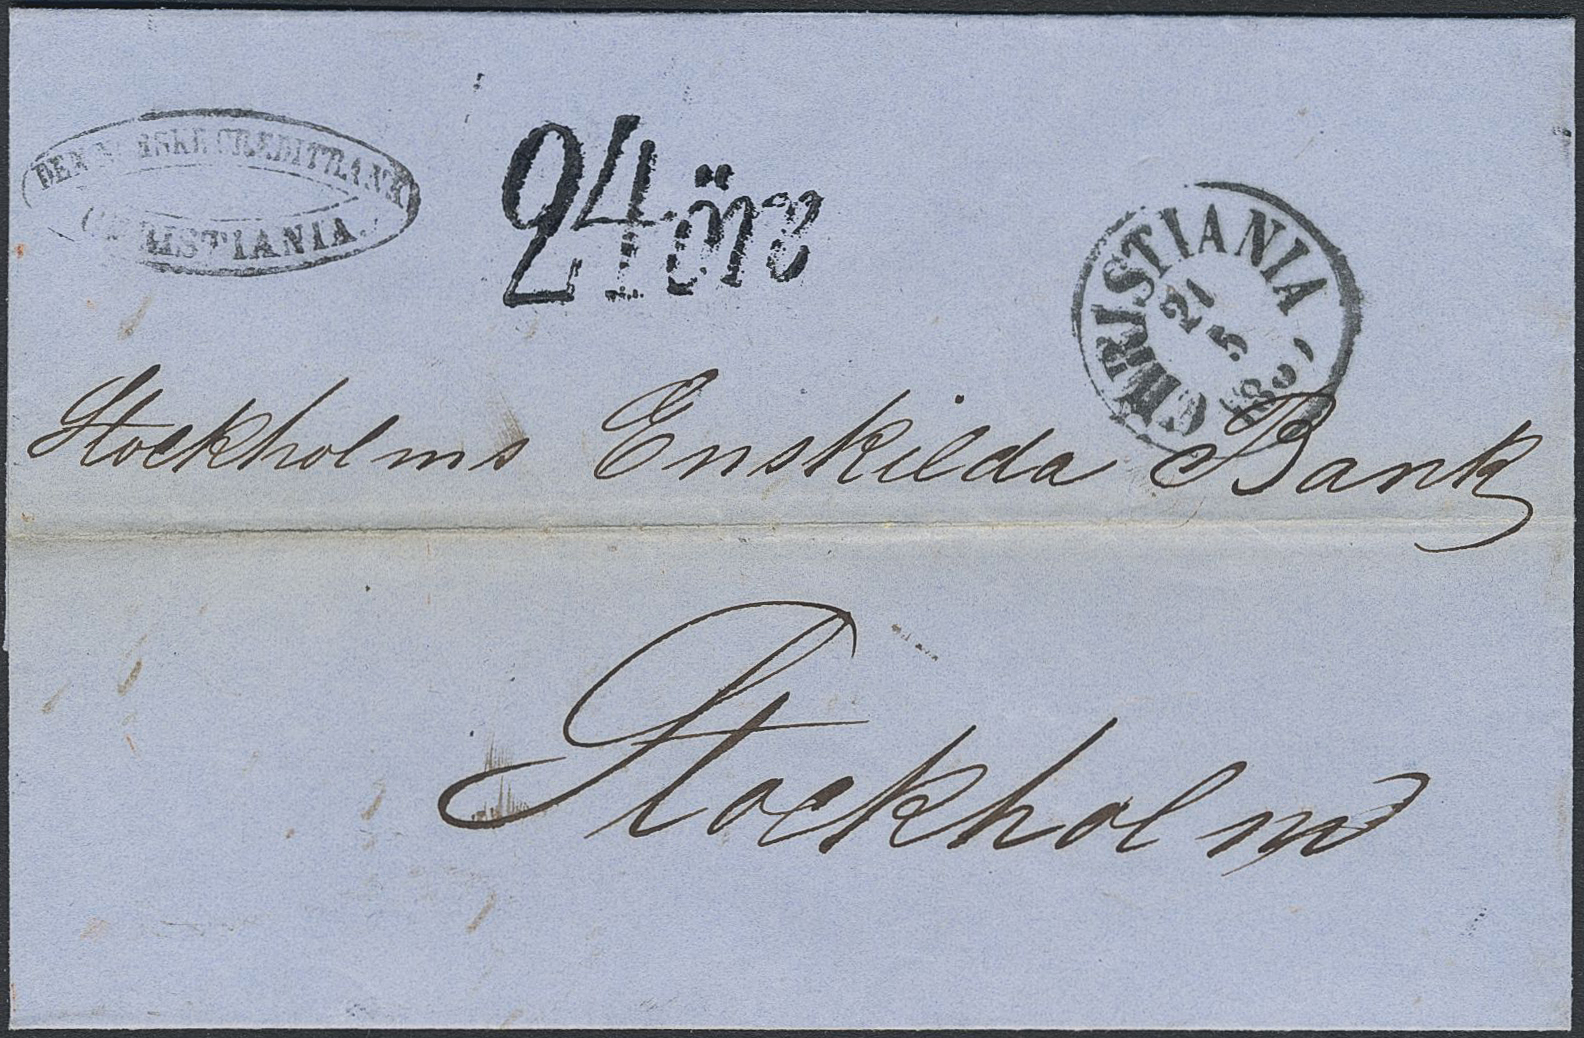 DEN NORSKE CREDITBANK
CHRISTIANIA.
24 öre
CHRISTIANIA
21
5
Stockholms Enskilda Bank
Stockholm